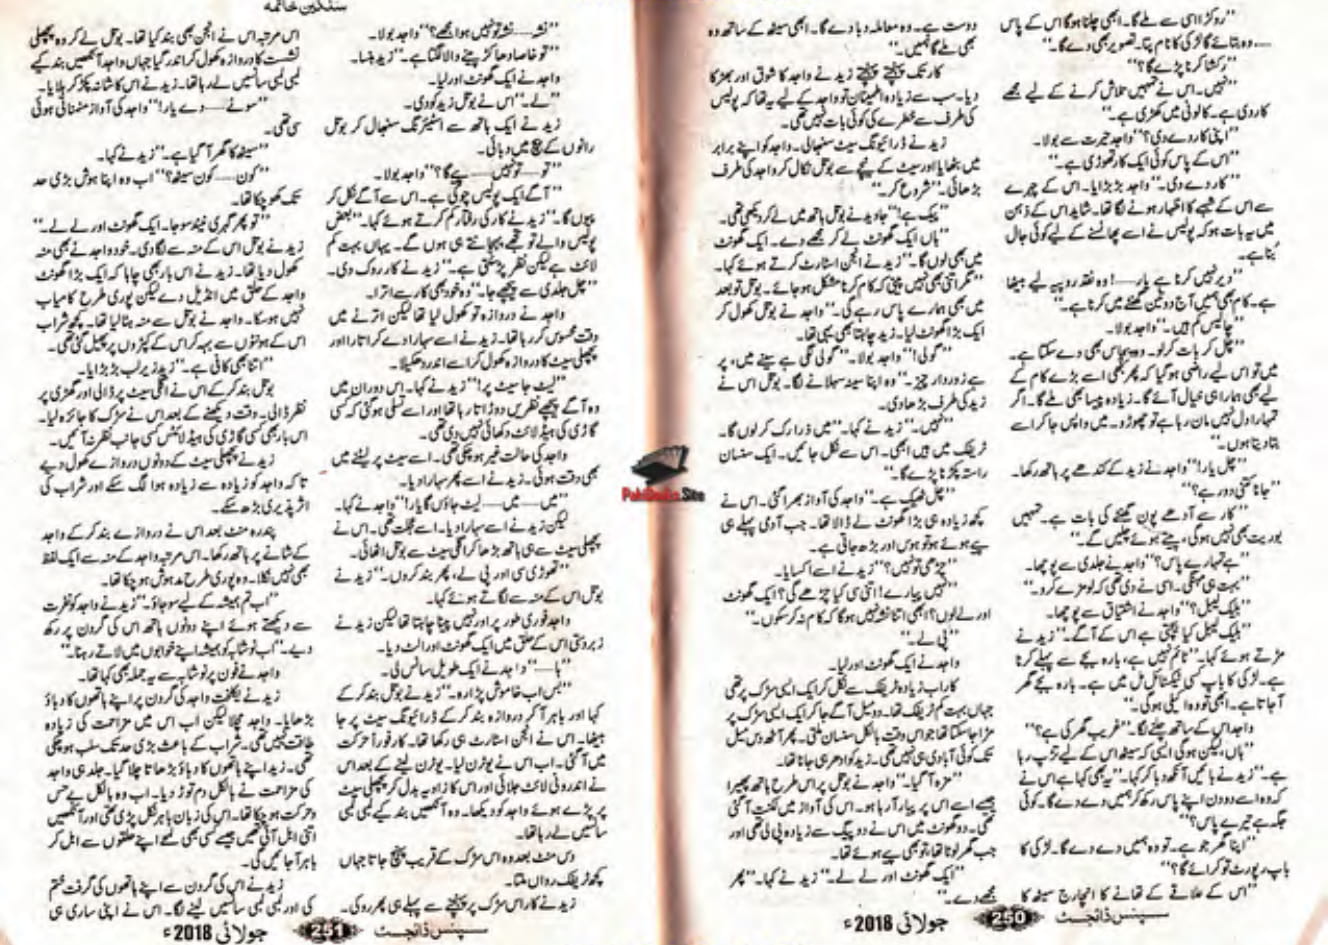 "روکڑا اسی سے ملے گا۔ ابھی چلنا ہوگا اس کے پاس
.... وہ بتائے گا لڑکی کا نام پتا۔ تصویر بھی دے گا۔"
"رکشا کرنا پڑے گا؟"
"نہیں۔ اس نے تمہیں تلاش کرنے کے لیے مجھے
کار دی ہے۔ کالونی میں کھڑی ہے۔"
"اپنی کار دے دی؟" واجد حیرت سے بولا۔
"اس کے پاس کوئی ایک کار تھوڑی ہے۔"
"کار دے دی۔" واجد بڑبڑایا۔ اس کے چہرے
سے اس کے شبہے کا اظہار ہونے لگا تھا۔ شاید اس کے ذہن
میں یہ بات ہو کہ پولیس نے اسے پھانسنے کے لیے کوئی جال
بُنا ہے۔
"دیر نہیں کرنا ہے یار....! وہ نقد روپیہ لیے بیٹھا
ہے۔ کام بھی ہمیں آج دو تین گھنٹے میں کرنا ہے۔"
"چالیس کم ہیں۔" واجد بولا۔
"چل کر بات کر لو۔ وہ پچاس بھی دے سکتا ہے۔
میں تو اس لیے راضی ہو گیا کہ پھر بھی اسے بڑے کام کے
لیے بھی ہمارا ہی خیال آئے گا۔ زیادہ پیسا بھی ملے گا۔ اگر
تمہارا دل نہیں مان رہا ہے تو چھوڑو۔ میں واپس جا کر اسے
بتا دیتا ہوں۔"
"چل یار!" واجد نے زید کے کندھے پر ہاتھ رکھا۔
"جانا کتنی دور ہے؟"
"کار سے آدھے پون گھنٹے کی بات ہے۔ تمہیں
بوریت بھی نہیں ہوگی، پیتے ہوئے چلیں گے۔"
"ہے تمہارے پاس؟" واجد نے جلدی سے پوچھا۔
"بہت ہی مہنگی۔ اسی نے دی تھی کہ لو مزے کرو۔"
"بلیک لیبل؟" واجد نے اشتیاق سے پوچھا۔
"بلیک لیبل کیا بیچتی ہے اس کے آگے۔" زید نے
مڑتے ہوئے کہا۔ "ٹائم نہیں ہے، بارہ بجے سے پہلے کرنا
ہے۔ لڑکی کا باپ کسی ٹیکسٹائل مل میں ہے۔ بارہ بجے گھر
آ جاتا ہے۔ ابھی تو وہ اکیلی ہوگی۔"
واجد اس کے ساتھ چلنے لگا۔ "غریب گھر کی ہے؟"
"ہاں، لیکن ہوگی ایسی کہ سیٹھ اس کے لیے تڑپ رہا
ہے۔" زید نے بائیں آنکھ دبا کر کہا۔ "یہ بھی کہا ہے اس نے
کہ وہ اسے دو دن اپنے پاس رکھ کر ہمیں دے دے گا۔ کوئی
جگہ ہے تیرے پاس؟"
"اپنا گھر جو ہے۔ تو وہ ہمیں دے دے گا۔ لڑکی کا
باپ رپورٹ تو کرائے گا؟"
"اس کے علاقے کے تھانے کا انچارج سیٹھ کا
دوست ہے۔ وہ معاملہ دبا دے گا۔ ابھی سیٹھ کے ساتھ وہ
بھی ملے گا ہمیں۔"
کار تک پہنچتے پہنچتے زید نے واجد کا شوق اور بھڑکا
دیا۔ سب سے زیادہ اطمینان تو واجد کے لیے یہ تھا کہ پولیس
کی طرف سے خطرے کی کوئی بات نہیں تھی۔
زید نے ڈرائیونگ سیٹ سنبھالی۔ واجد کو اپنے برابر
میں بٹھایا اور سیٹ کے نیچے سے بوتل نکال کر واجد کی طرف
بڑھائی۔ "شروع کر۔"
"پیک ہے!" جاوید نے بوتل ہاتھ میں لے کر دیکھی تھی۔
"ہاں ایک گھونٹ لے کر مجھے دے۔ ایک گھونٹ
میں بھی لوں گا۔" زید نے انجن اسٹارٹ کرتے ہوئے کہا۔
"مگر اتنی بھی نہیں پینی کہ کام کرنا مشکل ہو جائے۔ بوتل تو بعد
میں بھی ہمارے پاس رہے گی۔" واجد نے بوتل کھول کر
ایک بڑا گھونٹ لیا۔ زید چاہتا بھی یہی تھا۔
"گولی!" واجد بولا۔ "گولی لگی ہے سینے میں، پر
ہے زوردار چیز۔" وہ اپنا سینہ سہلانے لگا۔ بوتل اس نے
زید کی طرف بڑھا دی۔
"نہیں۔" زید نے کہا۔ "میں ذرا رک کر لوں گا۔
ٹریفک میں ہیں ابھی۔ اس سے نکل جائیں۔ ایک سنسان
راستہ پکڑنا پڑے گا۔"
"چل ٹھیک ہے۔" واجد کی آواز بھرا گئی۔ اس نے
کچھ زیادہ ہی بڑا گھونٹ لے ڈالا تھا۔ جب آدمی پہلے ہی
پیے ہوئے ہو تو ہوس اور بڑھ جاتی ہے۔
"چڑھی تو نہیں؟" زید نے اسے اکسایا۔
"نہیں پیارے! اتنی سی کیا چڑھے گی؟ ایک گھونٹ
اور لے لوں؟ ابھی اتنا نشہ نہیں ہوگا کہ کام نہ کر سکوں۔"
"پی لے۔"
واجد نے ایک گھونٹ اور لیا۔
کار اب زیادہ ٹریفک سے نکل کر ایک ایسی سڑک پر تھی
جہاں بہت کم ٹریفک تھا۔ دو میل آگے جا کر ایک ایسی سڑک پر
مڑا جا سکتا تھا جو اس وقت بالکل سنسان ملتی۔ پھر آٹھ دس میل
تک کوئی آبادی ہی نہیں تھی۔ زید کو ادھر ہی جانا تھا۔
"مزہ آ گیا۔" واجد نے بوتل پر اس طرح ہاتھ پھیرا
جیسے اسے اس پر پیار آ رہا ہو۔ اس کی آواز میں لکنت آ گئی
تھی۔ دو گھونٹ میں اس نے دو پیگ سے زیادہ پی لی تھی اور
جب گھر لوٹا تھا، تو بھی پیے ہوئے تھا۔
"ایک گھونٹ اور لے لے۔" زید نے کہا۔ "پھر
مجھے دے۔"
سسپنس ڈائجسٹ 250 جولائی 2018ء
PakiBooks.Site
سنگین خاتمہ
"نشہ.... نشہ تو نہیں ہوا مجھے؟" واجد بولا۔
"تو خاصا دھاکڑ پینے والا لگتا ہے۔" زید ہنسا۔
واجد نے ایک گھونٹ اور لیا۔
"لے۔" اس نے بوتل زید کو دی۔
زید نے ایک ہاتھ سے اسٹیئرنگ سنبھال کر بوتل
رانوں کے بیچ میں دبا لی۔
"تو.... تو نہیں.... پیے گا؟" واجد بولا۔
"آگے ایک پولیس چوکی ہے۔ اس سے آگے نکل کر
پیوں گا۔" زید نے کار کی رفتار کم کرتے ہوئے کہا۔ "بعض
پولیس والے تو تجھے پہچانتے ہی ہوں گے۔ یہاں بہت کم
لائٹ ہے لیکن نظر پڑ سکتی ہے۔" زید نے کار روک دی۔
"چل جلدی سے پیچھے جا۔" وہ خود بھی کار سے اترا۔
واجد نے دروازہ تو کھول لیا تھا لیکن اترنے میں
وقت محسوس کر رہا تھا۔ زید نے اسے سہارا دے کر اتارا اور
پچھلی سیٹ کا دروازہ کھول کر اسے اندر دھکیلا۔
"لیٹ جا سیٹ پر!" زید نے کہا۔ اس دوران میں
وہ آگے پیچھے نظریں دوڑاتا رہا تھا اور اسے تسلی ہو گئی کہ کسی
گاڑی کی ہیڈ لائٹ دکھائی نہیں دی تھی۔
واجد کی حالت غیر ہو چکی تھی۔ اسے سیٹ پر لیٹنے میں
بھی دقت ہوئی۔ زید نے اسے پھر سہارا دیا۔
"میں.... میں.... لیٹ جاؤں گا یار!" واجد نے کہا۔
لیکن زید نے اسے سہارا دیا۔ اسے عجلت تھی۔ اس نے
پچھلی سیٹ سے ہی ہاتھ بڑھا کر اگلی سیٹ سے بوتل اٹھائی۔
"تھوڑی سی اور پی لے، پھر بند کر دوں۔" زید نے
بوتل اس کے منہ سے لگاتے ہوئے کہا۔
واجد فوری طور پر اور نہیں پینا چاہتا تھا لیکن زید نے
زبردستی اس کے حلق میں ایک گھونٹ اور الٹ دیا۔
"ہا...." واجد نے ایک طویل سانس لی۔
"بس اب خاموش پڑا رہ۔" زید نے بوتل بند کر کے
کہا اور باہر آ کر دروازہ بند کر کے ڈرائیونگ سیٹ پر جا
بیٹھا۔ اس نے انجن اسٹارٹ ہی رکھا تھا۔ کار فوراً حرکت
میں آ گئی۔ اب اس نے یوٹرن لیا۔ یوٹرن لینے کے بعد اس
نے اندرونی لائٹ جلائی اور اس کا زاویہ بدل کر پچھلی سیٹ
پر پڑے ہوئے واجد کو دیکھا۔ وہ آنکھیں بند کیے لمبی لمبی
سانسیں لے رہا تھا۔
دس منٹ بعد وہ اس سڑک کے قریب پہنچ جاتا جہاں
کچھ ٹریفک رواں ملتا۔
زید نے کار اس سڑک پر پہنچنے سے پہلے ہی پھر روکی۔
اس مرتبہ اس نے انجن بھی بند کیا تھا۔ بوتل لے کر وہ پچھلی
نشست کا دروازہ کھول کر اندر گیا جہاں واجد آنکھیں بند کیے
لمبی لمبی سانسیں لے رہا تھا۔ زید نے اس کا شانہ پکڑ کر ہلایا۔
"سونے.... دے یار!" واجد کی آواز منمناتی ہوئی
سی تھی۔
"سیٹھ کا گھر آ گیا ہے۔" زید نے کہا۔
"کون.... کون سیٹھ؟" اب وہ اپنا ہوش بڑی حد
تک کھو چکا تھا۔
"تو پھر گہری نیند سو جا۔ ایک گھونٹ اور لے لے۔"
زید نے بوتل اس کے منہ سے لگا دی۔ خود واجد نے بھی منہ
کھول دیا تھا۔ زید نے اس بار بھی چاہا کہ ایک بڑا گھونٹ
واجد کے حلق میں انڈیل دے لیکن پوری طرح کامیاب
نہیں ہو سکا۔ واجد نے بوتل سے منہ ہٹا لیا تھا۔ کچھ شراب
اس کے ہونٹوں سے بہہ کر اس کے کپڑوں پر پھیل گئی تھی۔
"اتنا بھی کافی ہے۔" زید زیر لب بڑبڑایا۔
بوتل بند کر کے اس نے اگلی سیٹ پر ڈالی اور گھڑی پر
نظر ڈالی۔ وقت دیکھنے کے بعد اس نے سڑک کا جائزہ لیا۔
اس بار بھی کسی گاڑی کی ہیڈ لائٹس کسی جانب نظر نہ آئیں۔
زید نے پچھلی سیٹ کے دونوں دروازے کھول دیے
تاکہ واجد کو زیادہ سے زیادہ ہوا لگ سکے اور شراب کی
اثر پذیری بڑھ سکے۔
پندرہ منٹ بعد اس نے دروازے بند کر کے واجد
کے شانے پر ہاتھ رکھا۔ اس مرتبہ واجد کے منہ سے ایک لفظ
بھی نہیں نکلا۔ وہ پوری طرح مدہوش ہو چکا تھا۔
"اب تم ہمیشہ کے لیے سو جاؤ۔" زید نے واجد کو نفرت
سے دیکھتے ہوئے اپنے دونوں ہاتھ اس کی گردن پر رکھ
دیے۔ "اب نوشابہ کو ہمیشہ اپنے خوابوں میں لاتے رہنا۔"
واجد نے فون پر نوشابہ سے یہ جملہ بھی کہا تھا۔
زید نے یکلخت واجد کی گردن پر اپنے ہاتھوں کا دباؤ
بڑھایا۔ واجد مچلا لیکن اب اس میں مزاحمت کی زیادہ
طاقت نہیں تھی۔ شراب کے باعث بڑی حد تک سلب ہو چکی
تھی۔ زید اپنے ہاتھوں کا دباؤ بڑھاتا چلا گیا۔ جلد ہی واجد
کی مزاحمت نے بالکل دم توڑ دیا۔ اب وہ بالکل بے حس
و حرکت ہو چکا تھا۔ اس کی زبان باہر نکل پڑی تھی اور آنکھیں
اتنی ابل آئی تھیں جیسے کسی بھی لمحے اپنے حلقوں سے ابل کر
باہر آ جائیں گی۔
زید نے اس کی گردن سے اپنے ہاتھوں کی گرفت ختم
کی اور لمبی لمبی سانسیں لینے لگا۔ اس نے اپنی ساری ہی
سسپنس ڈائجسٹ 251 جولائی 2018ء